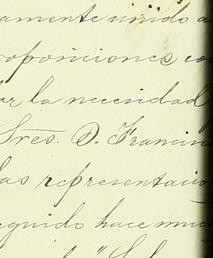 amente unido a
roposiciones co
ar la necesidad
Sres. D. Francis
las representacio
eguido hace mu